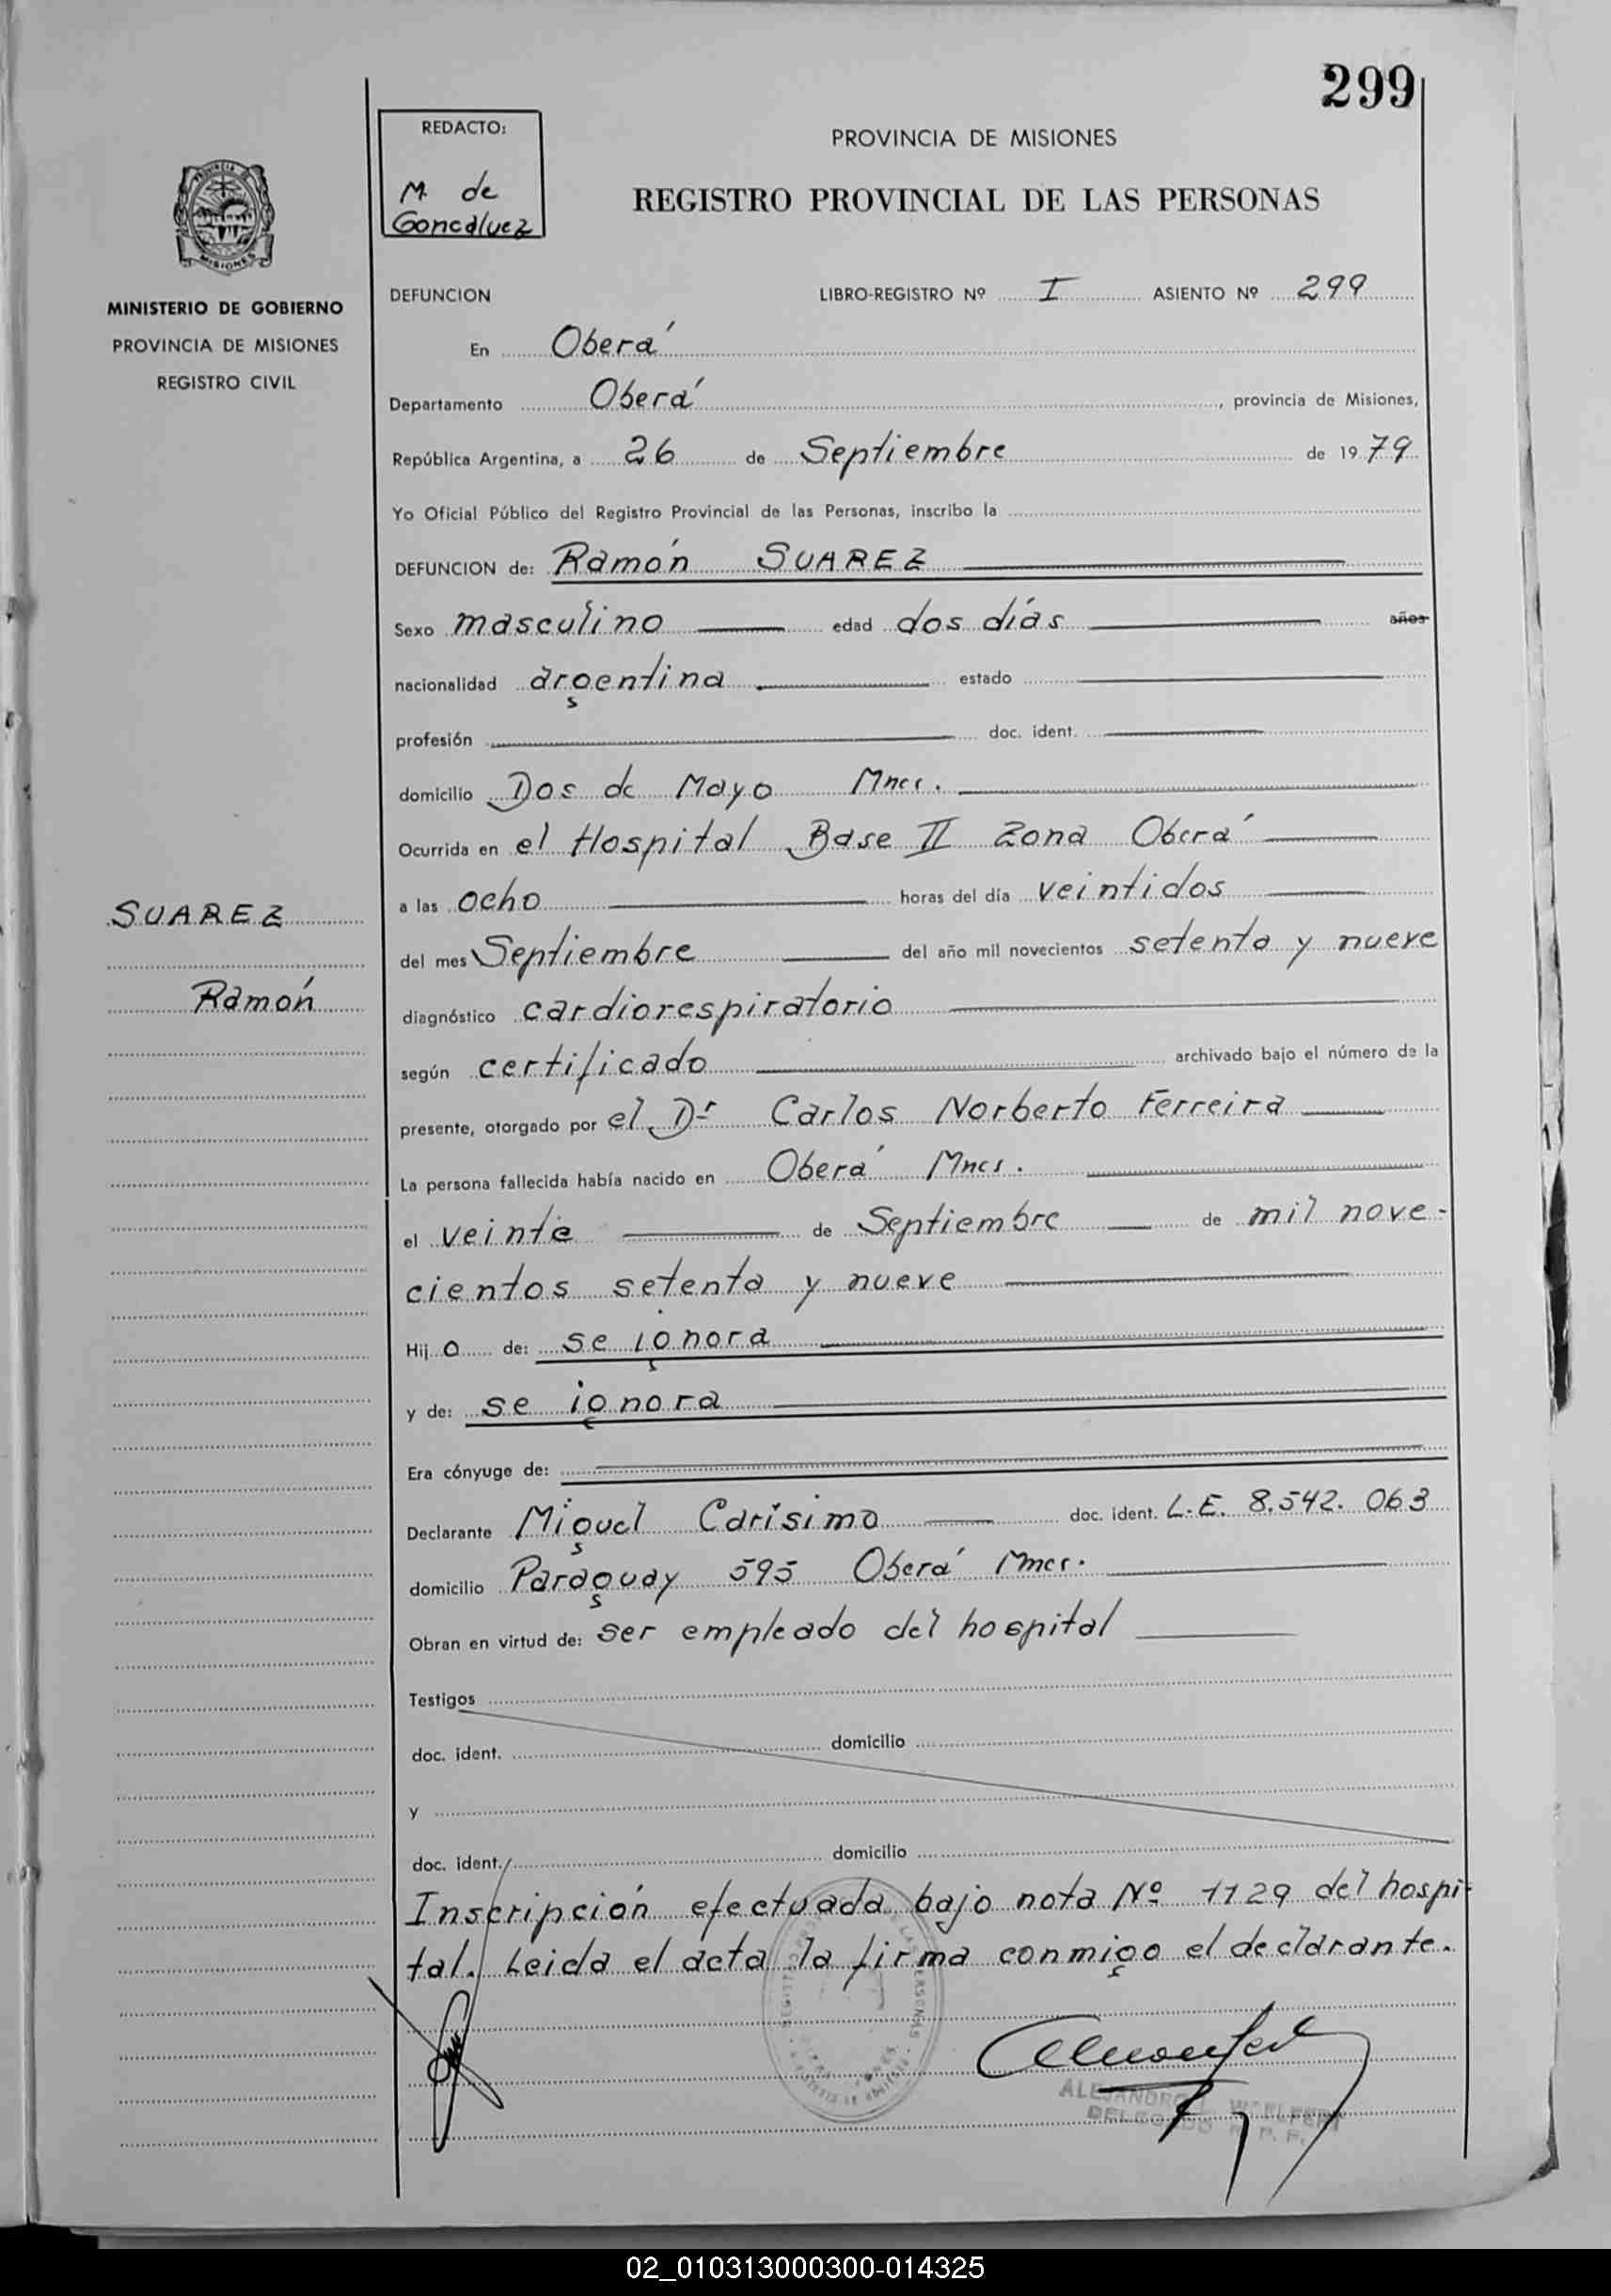 299
REDACTO:
M. de
Goncalvez
PROVINCIA DE MISIONES
REGISTRO PROVINCIAL DE LAS PERSONAS
MINISTERIO DE GOBIERNO
PROVINCIA DE MISIONES
REGISTRO CIVIL
DEFUNCION LIBRO-REGISTRO Nº I ASIENTO Nº 299
En Oberá
Departamento Oberá, provincia de Misiones,
República Argentina, a 26 de Septiembre de 1979
Yo Oficial Público del Registro Provincial de las Personas, inscribo la
DEFUNCION de: Ramón SUAREZ
Sexo masculino edad dos días años
nacionalidad argentina estado
profesión doc. ident.
domicilio Dos de Mayo Mnes.
Ocurrida en el Hospital Base II Zona Oberá
a las ocho horas del día veintidos
SUAREZ
del mes Septiembre del año mil novecientos setenta y nueve
Ramón
diagnóstico cardiorespiratorio
según certificado archivado bajo el número de la
presente, otorgado por el Dr Carlos Norberto Ferreira
La persona fallecida había nacido en Oberá Mnes.
el veinte de Septiembre de mil nove-
cientos setenta y nueve
Hijo de: se ignora
y de: se ignora
Era cónyuge de:
Declarante Miguel Carísimo doc. ident. L.E. 8.542.063
domicilio Paraguay 595 Oberá Mnes.
Obran en virtud de: ser empleado del hospital
Testigos
doc. ident. domicilio
y
doc. ident. domicilio
Inscripción efectuada bajo nota Nº 1129 del hospi-
tal. Leida el acta la firma conmigo el declarante.
ALEJANDRO
DELEGADO R. P. P.
02_010313000300-014325